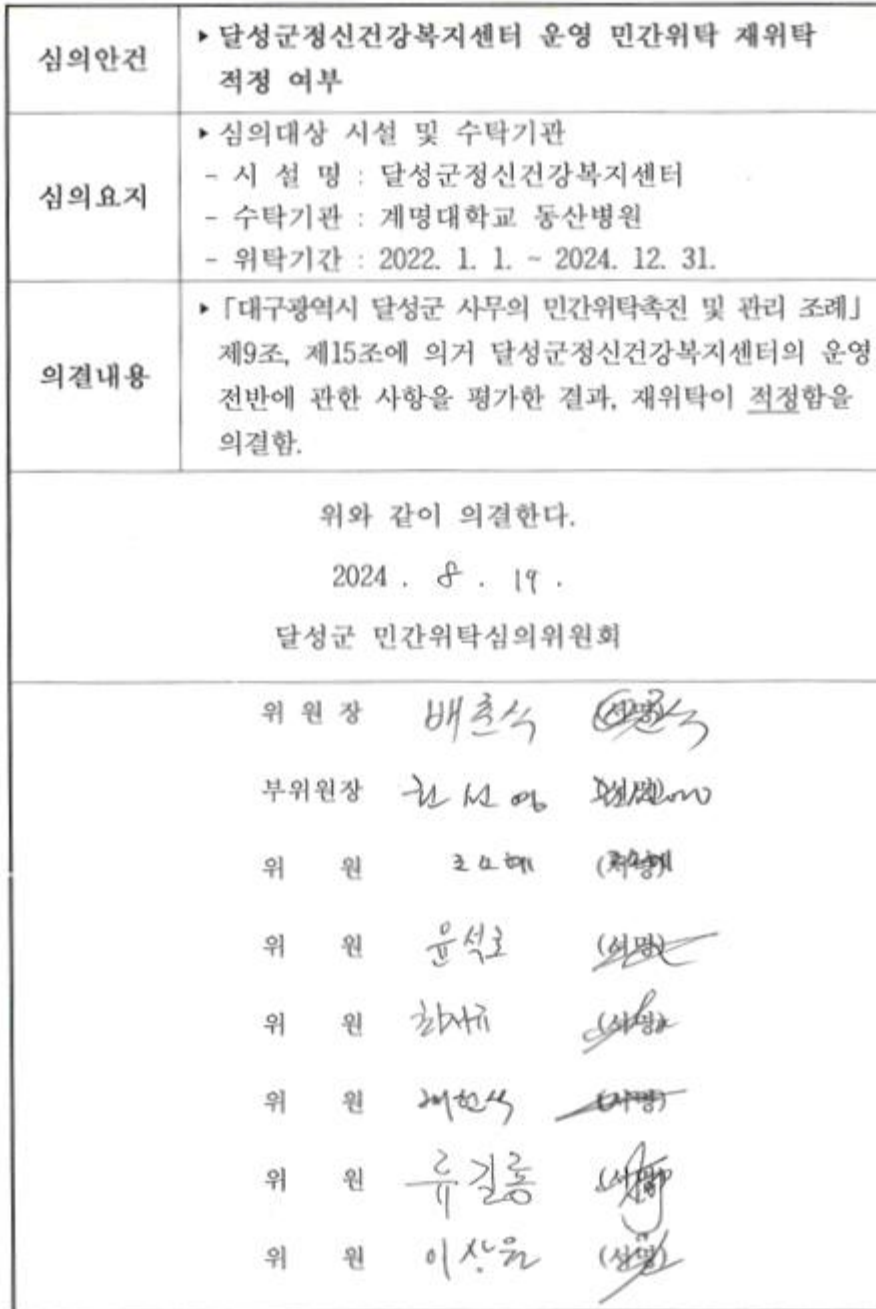 심의안건
▸ 달성군정신건강복지센터 운영 민간위탁 재위탁
적정 여부
심의요지
▸ 심의대상 시설 및 수탁기관
- 시 설 명 : 달성군정신건강복지센터
- 수탁기관 : 계명대학교 동산병원
- 위탁기간 : 2022. 1. 1. ~ 2024. 12. 31.
의결내용
▸ 「대구광역시 달성군 사무의 민간위탁촉진 및 관리 조례」
제9조, 제15조에 의거 달성군정신건강복지센터의 운영
전반에 관한 사항을 평가한 결과, 재위탁이 적정함을
의결함.
위와 같이 의결한다.
2024 . 8 . 19 .
달성군 민간위탁심의위원회
위 원 장 배춘식 (서명)
부위원장
위 원 (서명)
위 원 윤석호 (서명)
위 원 (서명)
위 원 (서명)
위 원 류길룡 (서명)
위 원 이상원 (서명)